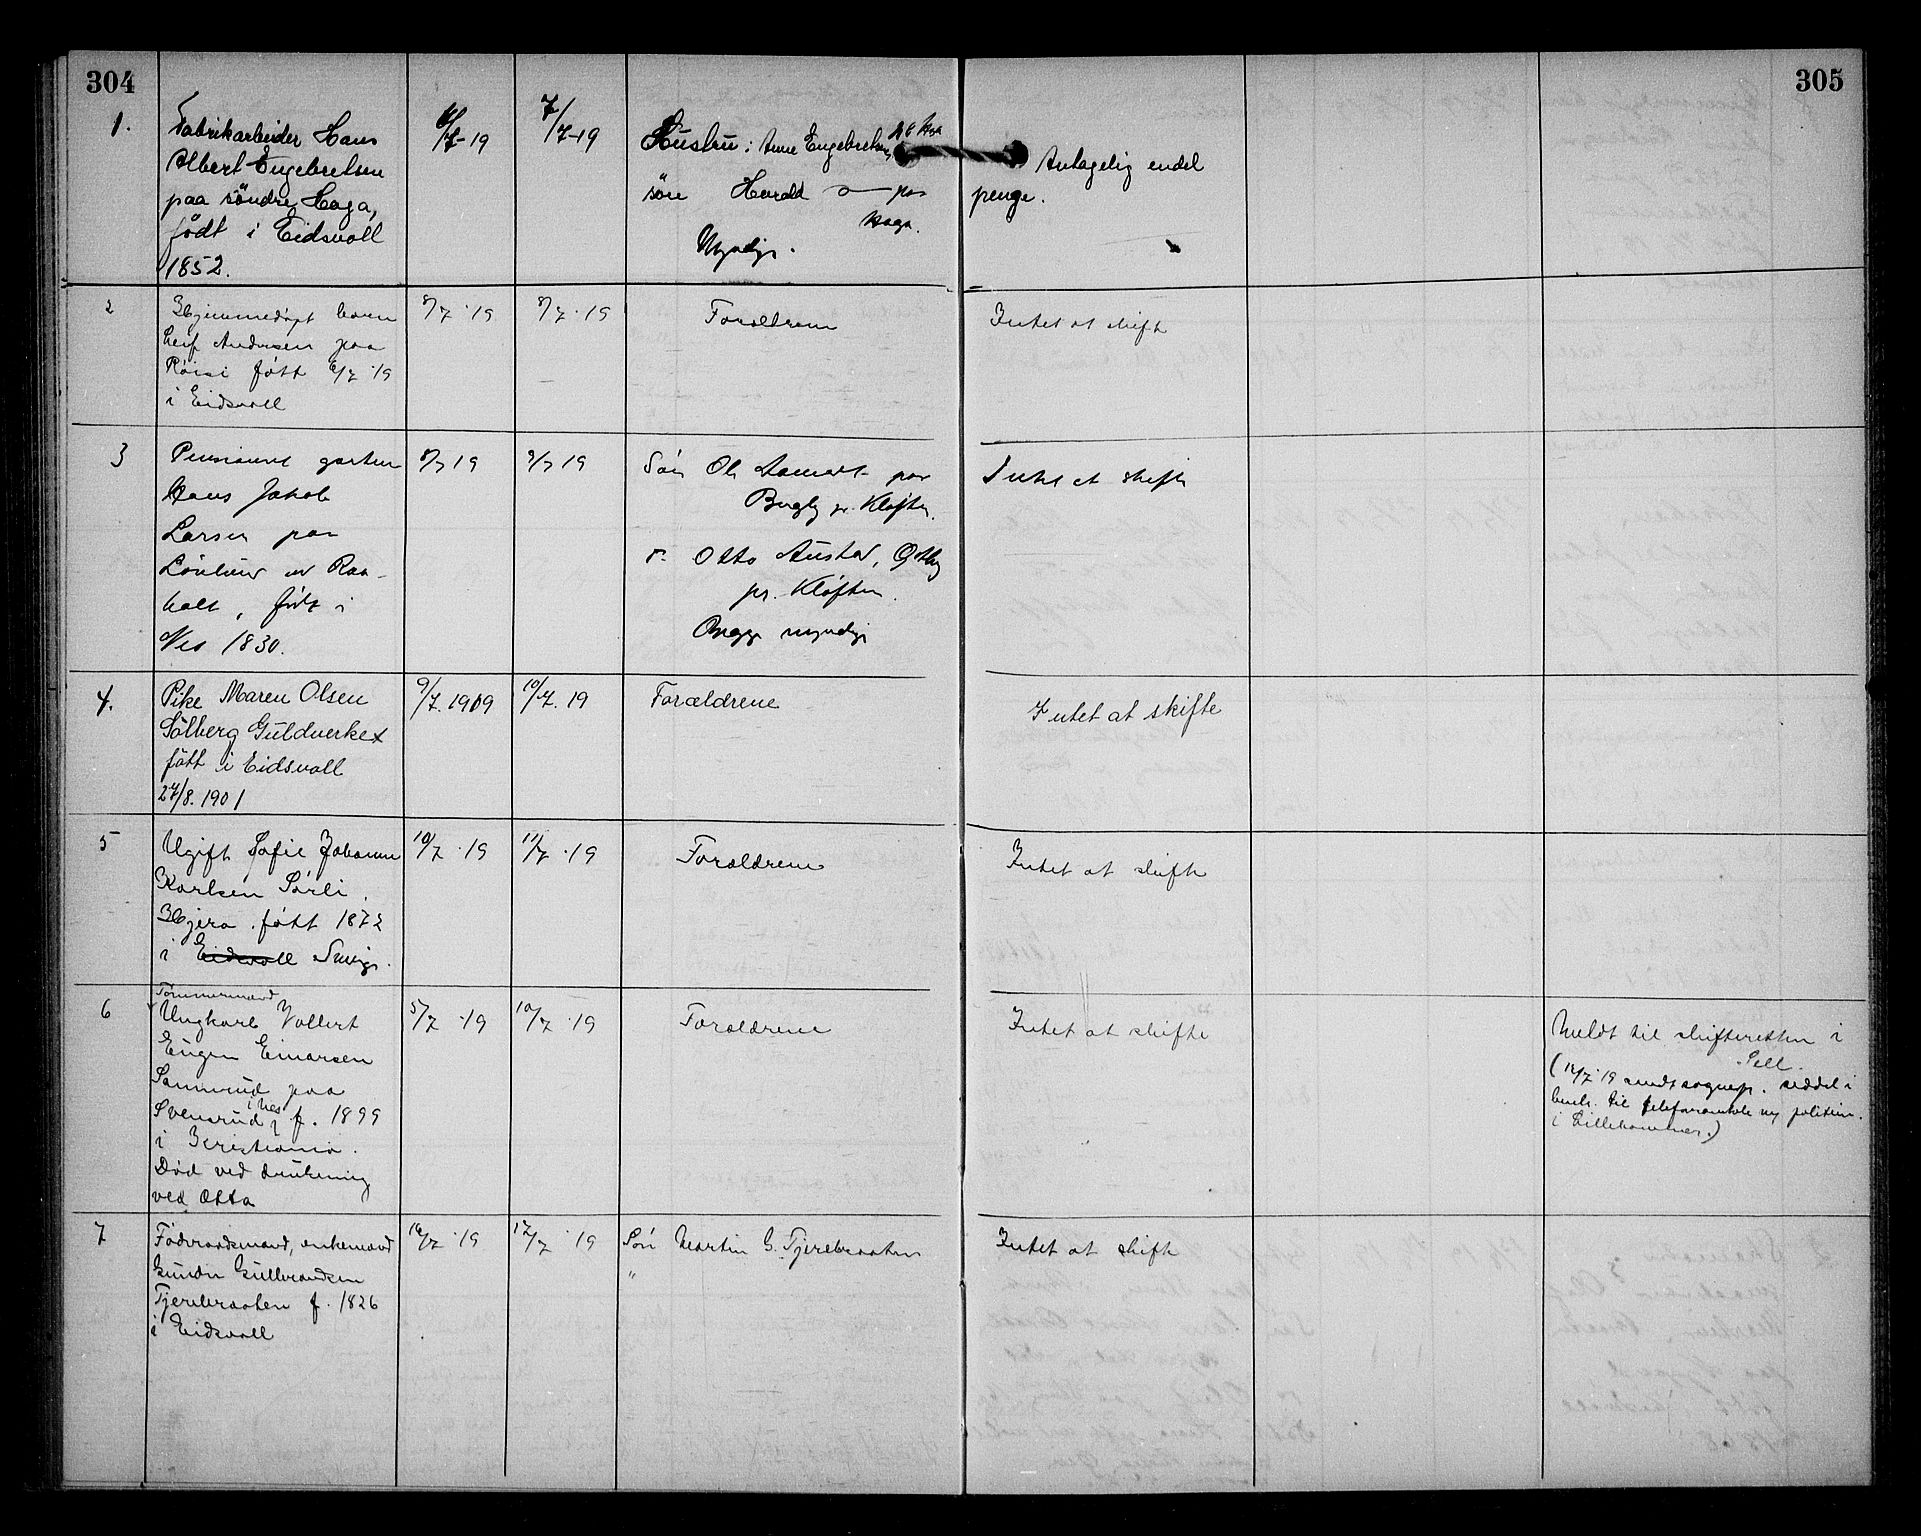 304
305
1.
Fabrikarbeider Hans
Albert Engebretsen
paa söndre Haga,
födt i Eidsvoll
1852.
6/7-19
7/7-19
Hustru: Anne Engebretsen
sön Harald — paa
Haga.
Myndig.
Antagelig endel
penge.
2
Hjemmedøpt barn
Leif Andersen paa
Röisi født 6/7 19
i Eidsvoll
8/7 19
8/7 19
Forældrene
Intet at skifte
3
Pensioneret
Hans Jakob
Larsen paa
ved Raa-
holt, født i
Nes 1830.
8/7 19
9/7 19
Sön Ole paa
pr. Kløften.
Otto Austad,
pr. Kløften.
Begge myndige
Intet at skifte
4.
Pike Maren Olsen
Sölberg Guldverket
fött i Eidsvoll
27/8. 1901
9/7. 1919
10/7. 19
Forældrene
Intet at skifte
5
Ugift Sofie Johanne
Karlsen Sörli,
Hjera. født 1872
i Eidsvoll
10/7 19
11/7 19
Forældrene
Intet at skifte
6
Tömmermand
Ungkarl Valbert
Eugen Einarsen
Sannerud paa
Svensrud i Nes f. 1899
i Kristiania.
Död ved drukning
ved Otta
5/7 19
10/7 19
Forældrene
Intet at skifte
Meldt til skifteretten i
Sell.
(12/7 19 sendt sognepr. seddel i
henh. til telefonsamtale m/ politim.
i Lillehammer.)
7
Föderaadsmand, enkemand
Gunder Gulbrandsen
Tjerebraaten f. 1826
i Eidsvoll
16/7 19
17/7 19
Sön Martin G. Tjerebraaten
"
Intet at skifte